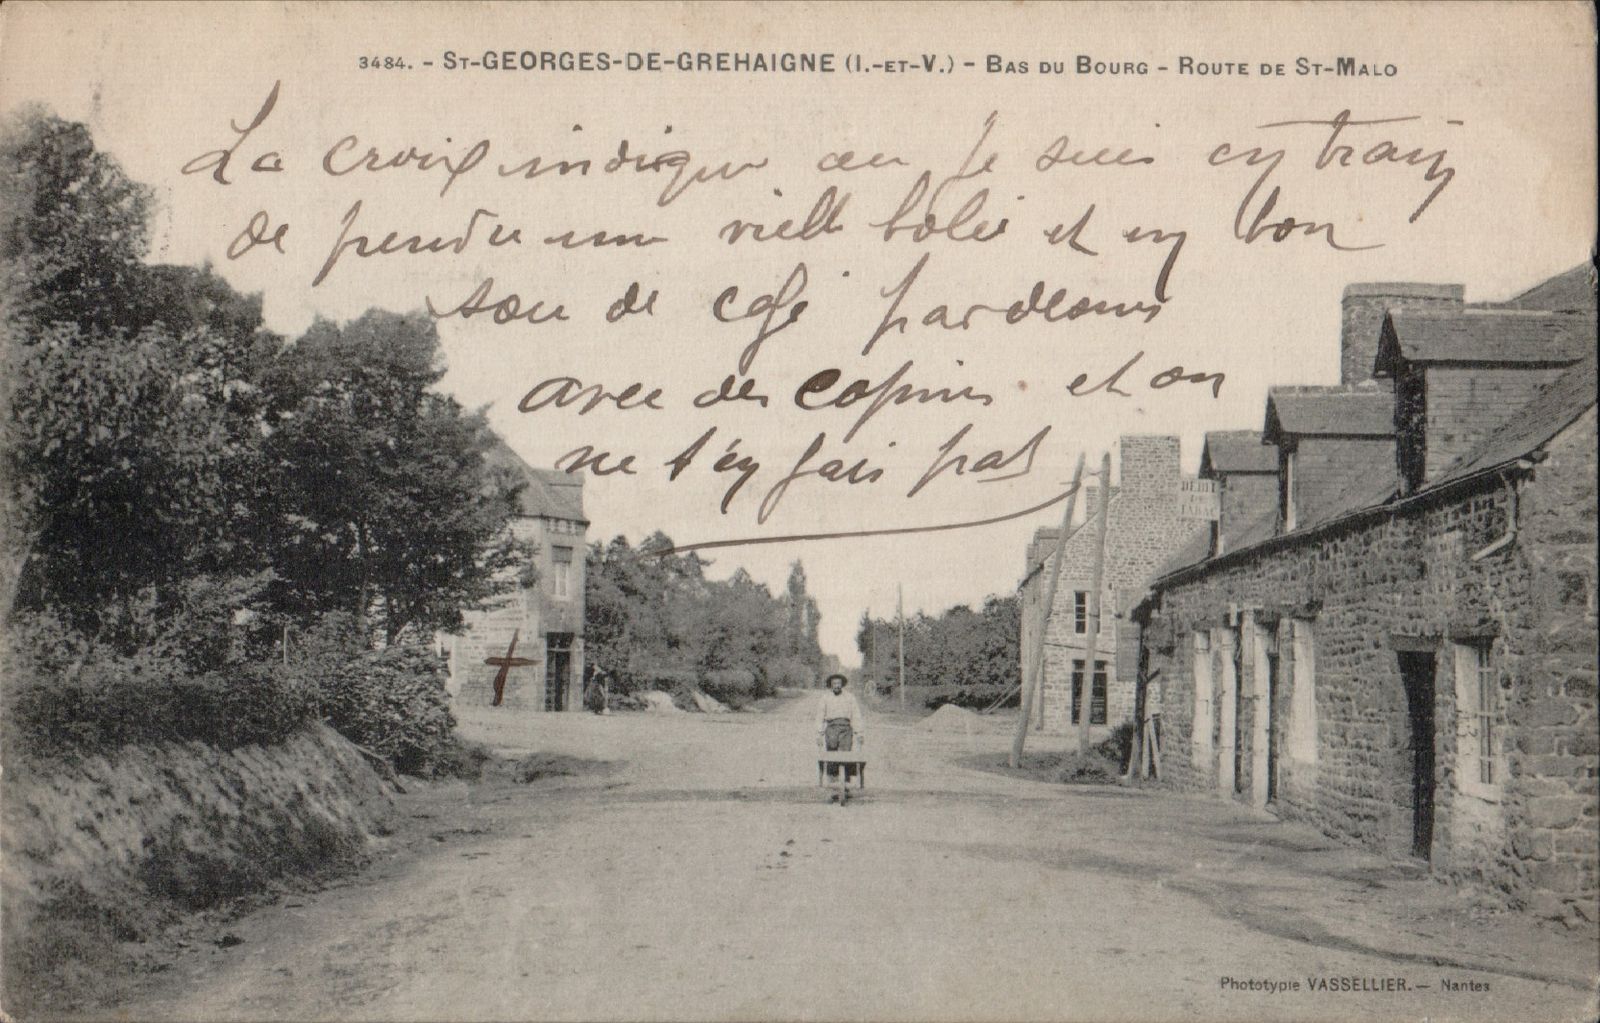 3484. - St-GEORGES-DE-GREHAIGNE (I.-ET-V.) - BAS DU BOURG - ROUTE DE ST-MALO
La croix indique ou je suis en train
de prendre une vielle bolée et en bon
sou de café par dessus
avec des copins et on
ne t'en fais pas
DEBIT
DE
TABAC
Phototypie VASSELLIER. — Nantes